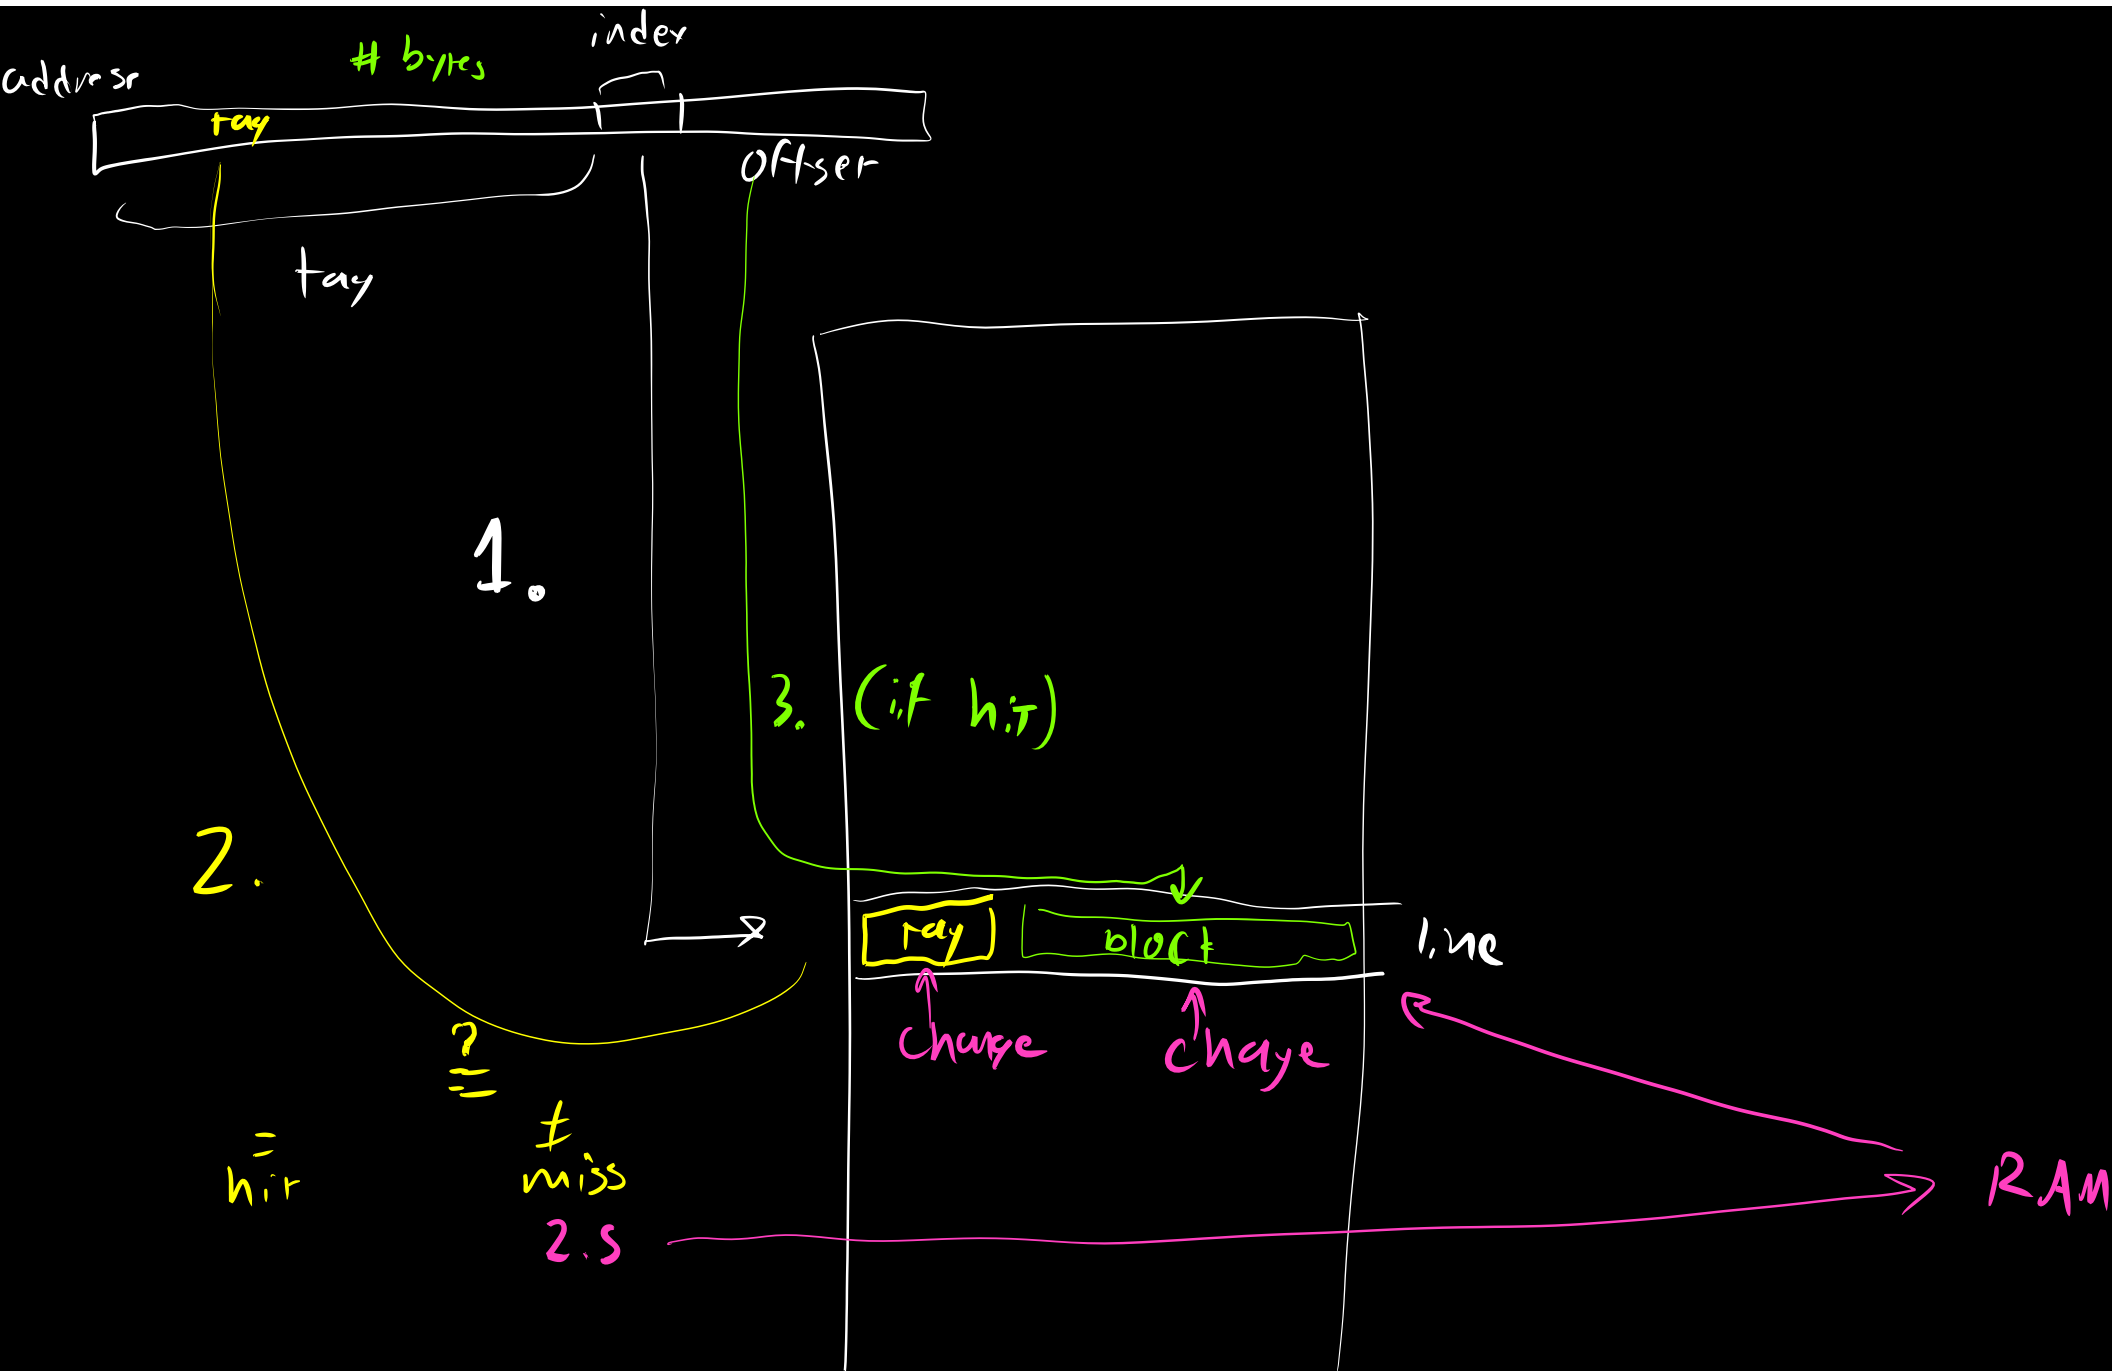 index
# bytes
address
tag
offset
tag
1.
3. (if hit)
2.
tag block line
change change
?
=
= ≠
hit miss
RAM
2.5